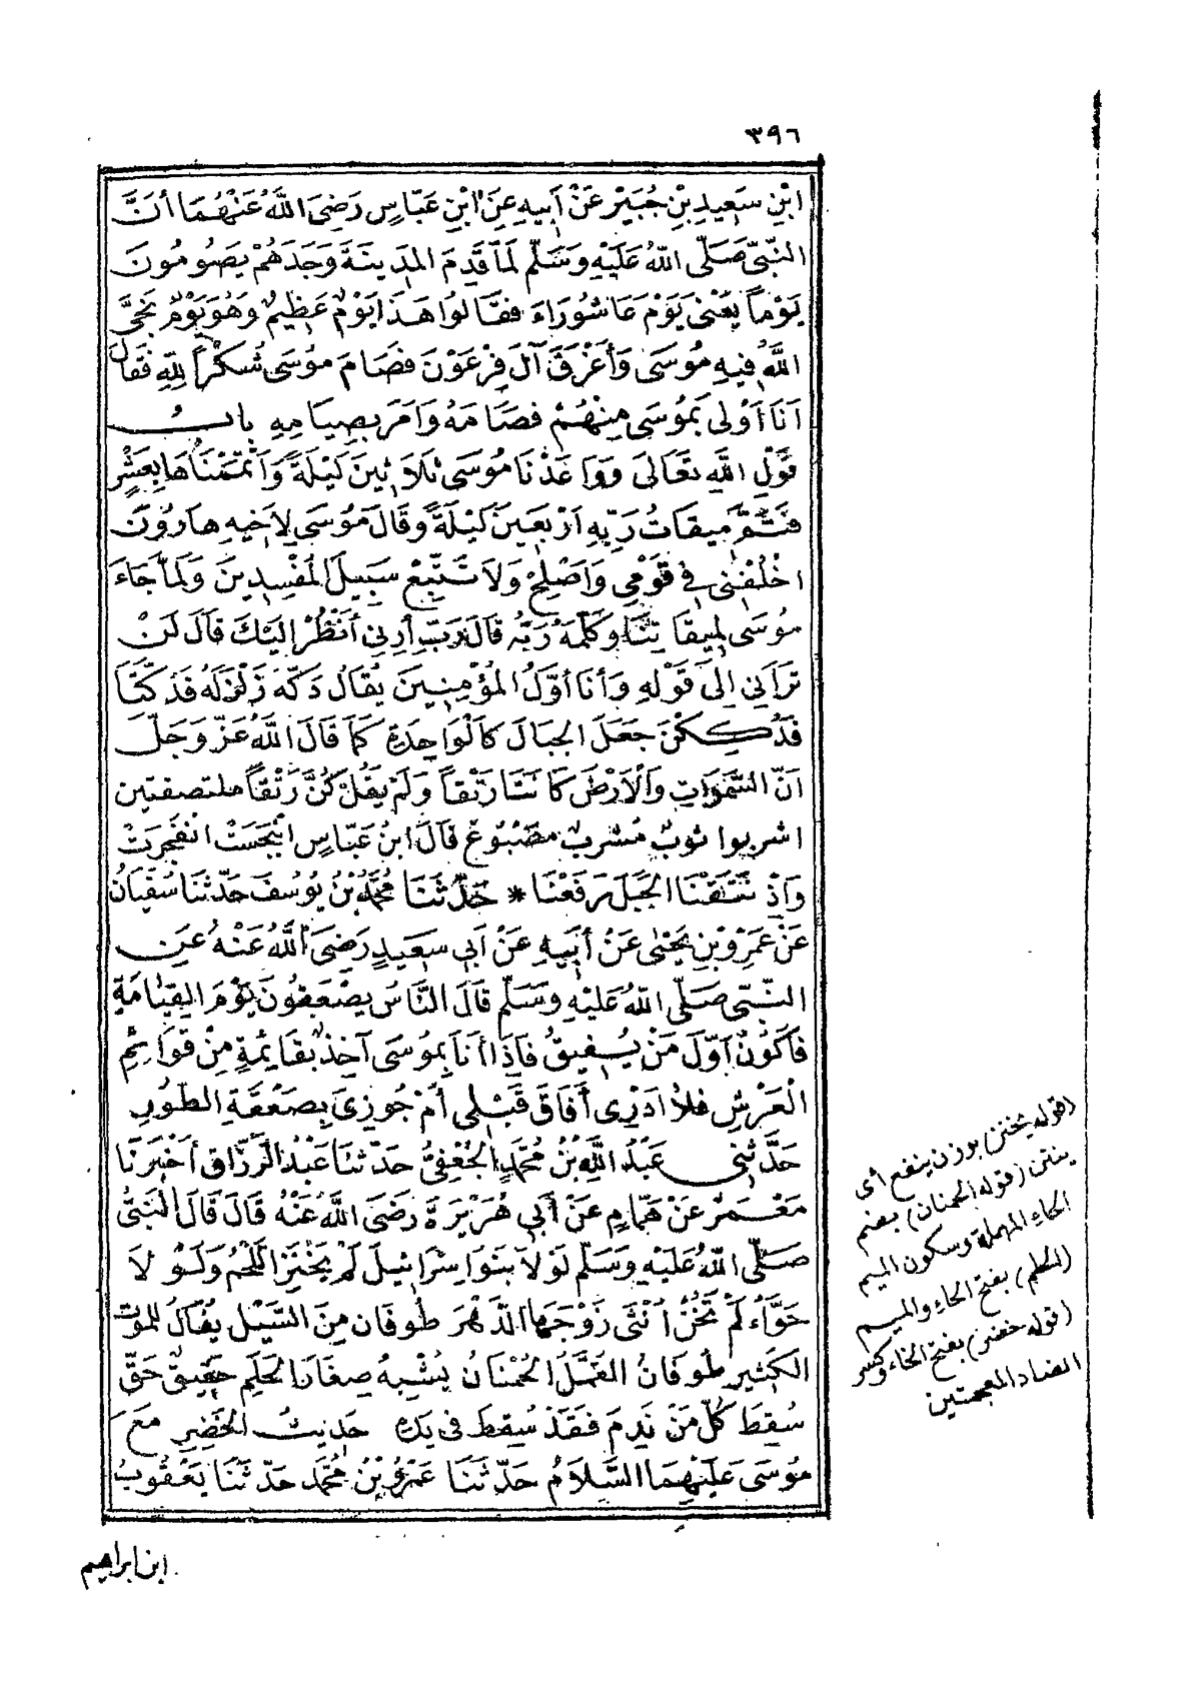 ٣٩٦
ابْنِ سَعِيدِ بْنِ جُبَيْرٍ عَنْ أَبِيهِ عَنِ ابْنِ عَبَّاسٍ رَضِيَ اللَّهُ عَنْهُمَا أَنَّ
النَّبِيَّ صَلَّى اللَّهُ عَلَيْهِ وَسَلَّمَ لَمَّا قَدِمَ الْمَدِينَةَ وَجَدَهُمْ يَصُومُونَ
يَوْماً يَعْنِى يَوْمَ عَاشُورَاءَ فَقَالُوا هَذَا يَوْمٌ عَظِيمٌ وَهُوَ يَوْمٌ نَجَّى
اللَّهُ فِيهِ مُوسَى وَأَغْرَقَ آلَ فِرْعَوْنَ فَصَامَ مُوسَى شُكْراً لِلَّهِ فَقَالَ
أَنَا أَوْلَى بِمُوسَى مِنْهُمْ فَصَامَهُ وَأَمَرَ بِصِيَامِهِ بابُ
قَوْلِ اللَّهِ تَعَالَى وَوَاعَدْنَا مُوسَى ثَلَاثِينَ لَيْلَةً وَأَتْمَمْنَاهَا بِعَشْرٍ
فَتَمَّ مِيقَاتُ رَبِّهِ أَرْبَعِينَ لَيْلَةً وَقَالَ مُوسَى لِأَخِيهِ هَارُونَ
اخْلُفْنِى فِى قَوْمِى وَأَصْلِحْ وَلَا تَتَّبِعْ سَبِيلَ الْمُفْسِدِينَ وَلَمَّا جَاءَ
مُوسَى لِمِيقَاتِنَا وَكَلَّمَهُ رَبُّهُ قَالَ رَبِّ أَرِنِى أَنْظُرْ إِلَيْكَ قَالَ لَنْ
تَرَانِى إِلَى قَوْلِهِ وَأَنَا أَوَّلُ الْمُؤْمِنِينَ يُقَالُ دَكَّهُ زَلْزَلَهُ فَدُكَّتَا
فَدُكِكْنَ جَعَلَ الْجِبَالَ كَالْوَاحِدَةِ كَمَا قَالَ اللَّهُ عَزَّ وَجَلَّ
أَنَّ السَّمَوَاتِ وَالْأَرْضَ كَانَتَا رَتْقاً وَلَمْ يَقُلْ كُنَّ رَتْقاً ملتصقتين
اشربوا ثوبٌ مُشَرَّبٌ مَصْبُوغٌ قَالَ ابْنُ عَبَّاسٍ انْبَجَسَتْ انْفَجَرَتْ
وَإِذْ نَتَقْنَا الْجَبَلَ رَفَعْنَا * حَدَّثَنَا مُحَمَّدُ بْنُ يُوسُفَ حَدَّثَنَا سُفْيَانُ
عَنْ عَمْرِو بْنِ يَحْيَى عَنْ أَبِيهِ عَنْ أَبِى سَعِيدٍ رَضِىَ اللَّهُ عَنْهُ عَنِ
النَّبِىِّ صَلَّى اللَّهُ عَلَيْهِ وَسَلَّمَ قَالَ النَّاسُ يَصْعَقُونَ يَوْمَ الْقِيَامَةِ
فَأَكُونُ أَوَّلَ مَنْ يُفِيقُ فَإِذَا أَنَا بِمُوسَى آخِذٌ بِقَائِمَةٍ مِنْ قَوَائِمِ
الْعَرْشِ فَلَا أَدْرِى أَفَاقَ قَبْلِى أَمْ جُوزِىَ بِصَعْقَةِ الطُّورِ
حَدَّثَنِى عَبْدُ اللَّهِ بْنُ مُحَمَّدٍ الْجُعْفِىُّ حَدَّثَنَا عَبْدُ الرَّزَّاقِ أَخْبَرَنَا
مَعْمَرٌ عَنْ هَمَّامٍ عَنْ أَبِى هُرَيْرَةَ رَضِىَ اللَّهُ عَنْهُ قَالَ قَالَ النَّبِىُّ
صَلَّى اللَّهُ عَلَيْهِ وَسَلَّمَ لَوْلَا بَنُوا إِسْرَائِيلَ لَمْ يَخْنَزِ اللَّحْمُ وَلَوْلَا
حَوَّاءُ لَمْ تَخُنْ أُنْثَى زَوْجَهَا الدَّهْرَ طُوفَان مِنَ السَّيْلِ يُقَالُ لِلْمَوْتِ
الْكَثِيرِ طُوفَانُ الْقُمَّلُ الْحُمْنَانُ يُشْبِهُ صِغَارَ الْحَلَمِ حَقِيقٌ حَقٌّ
سُقِطَ كُلُّ مَنْ نَدِمَ فَقَدْ سُقِطَ فِى يَدِهِ حَدِيثُ الْخَضِرِ مَعَ
مُوسَى عَلَيْهِمَا السَّلَامُ حَدَّثَنَا عَمْرُو بْنُ مُحَمَّد حَدَّثَنَا يَعْقُوبُ
ابن ابراهيم
(قوله يخنز) بوزن ينفع أى
ينتن (قوله الحمنان) بضم
الحاء المهملة وسكون الميم
(الحلم) بفتح الحاء والميم
(قوله خضر) بفتح الخاء وكسر
الضاد المعجمتين